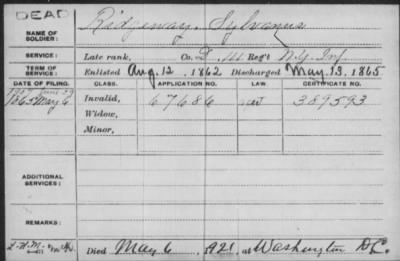 DEAD
NAME OF SOLDIER: Ridgeway, Sylvanus
SERVICE: Late rank, Co. D, 111 Reg't N.Y. Inf.
TERM OF SERVICE: Enlisted Aug. 12, 1862 Discharged May 13, 1865
DATE OF FILING. CLASS. APPLICATION NO. LAW. CERTIFICATE NO.
1865 May 6 Invalid, 67686 389593
Widow,
Minor,
ADDITIONAL SERVICES:
REMARKS:
Died May 6, 1921, at Washington D.C.